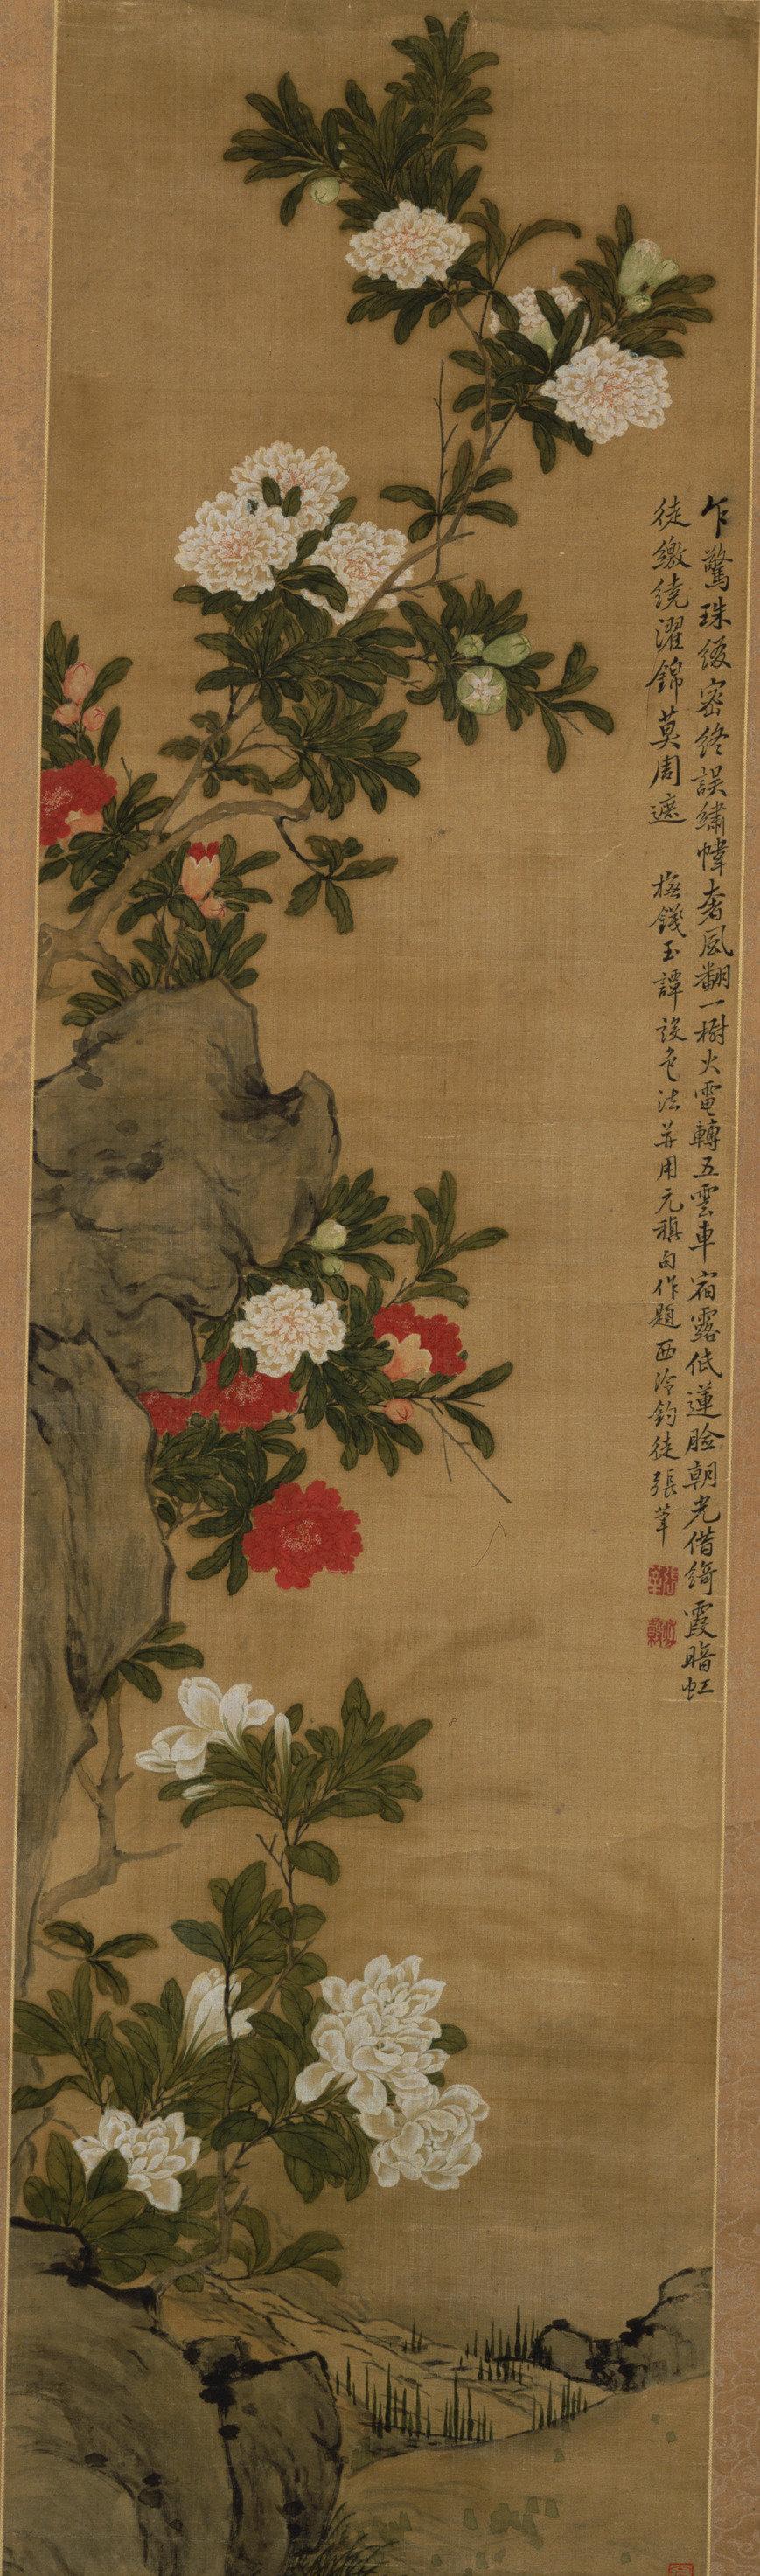 乍驚珠綴密終誤繡幃奢風翻一樹火電轉五雲車宿露低蓮臉朝光借綺霞暗虹
徒繳繞濯錦莫周遮　橅錢玉譚設色法并用元稹句作題西泠釣徒張莘
張莘